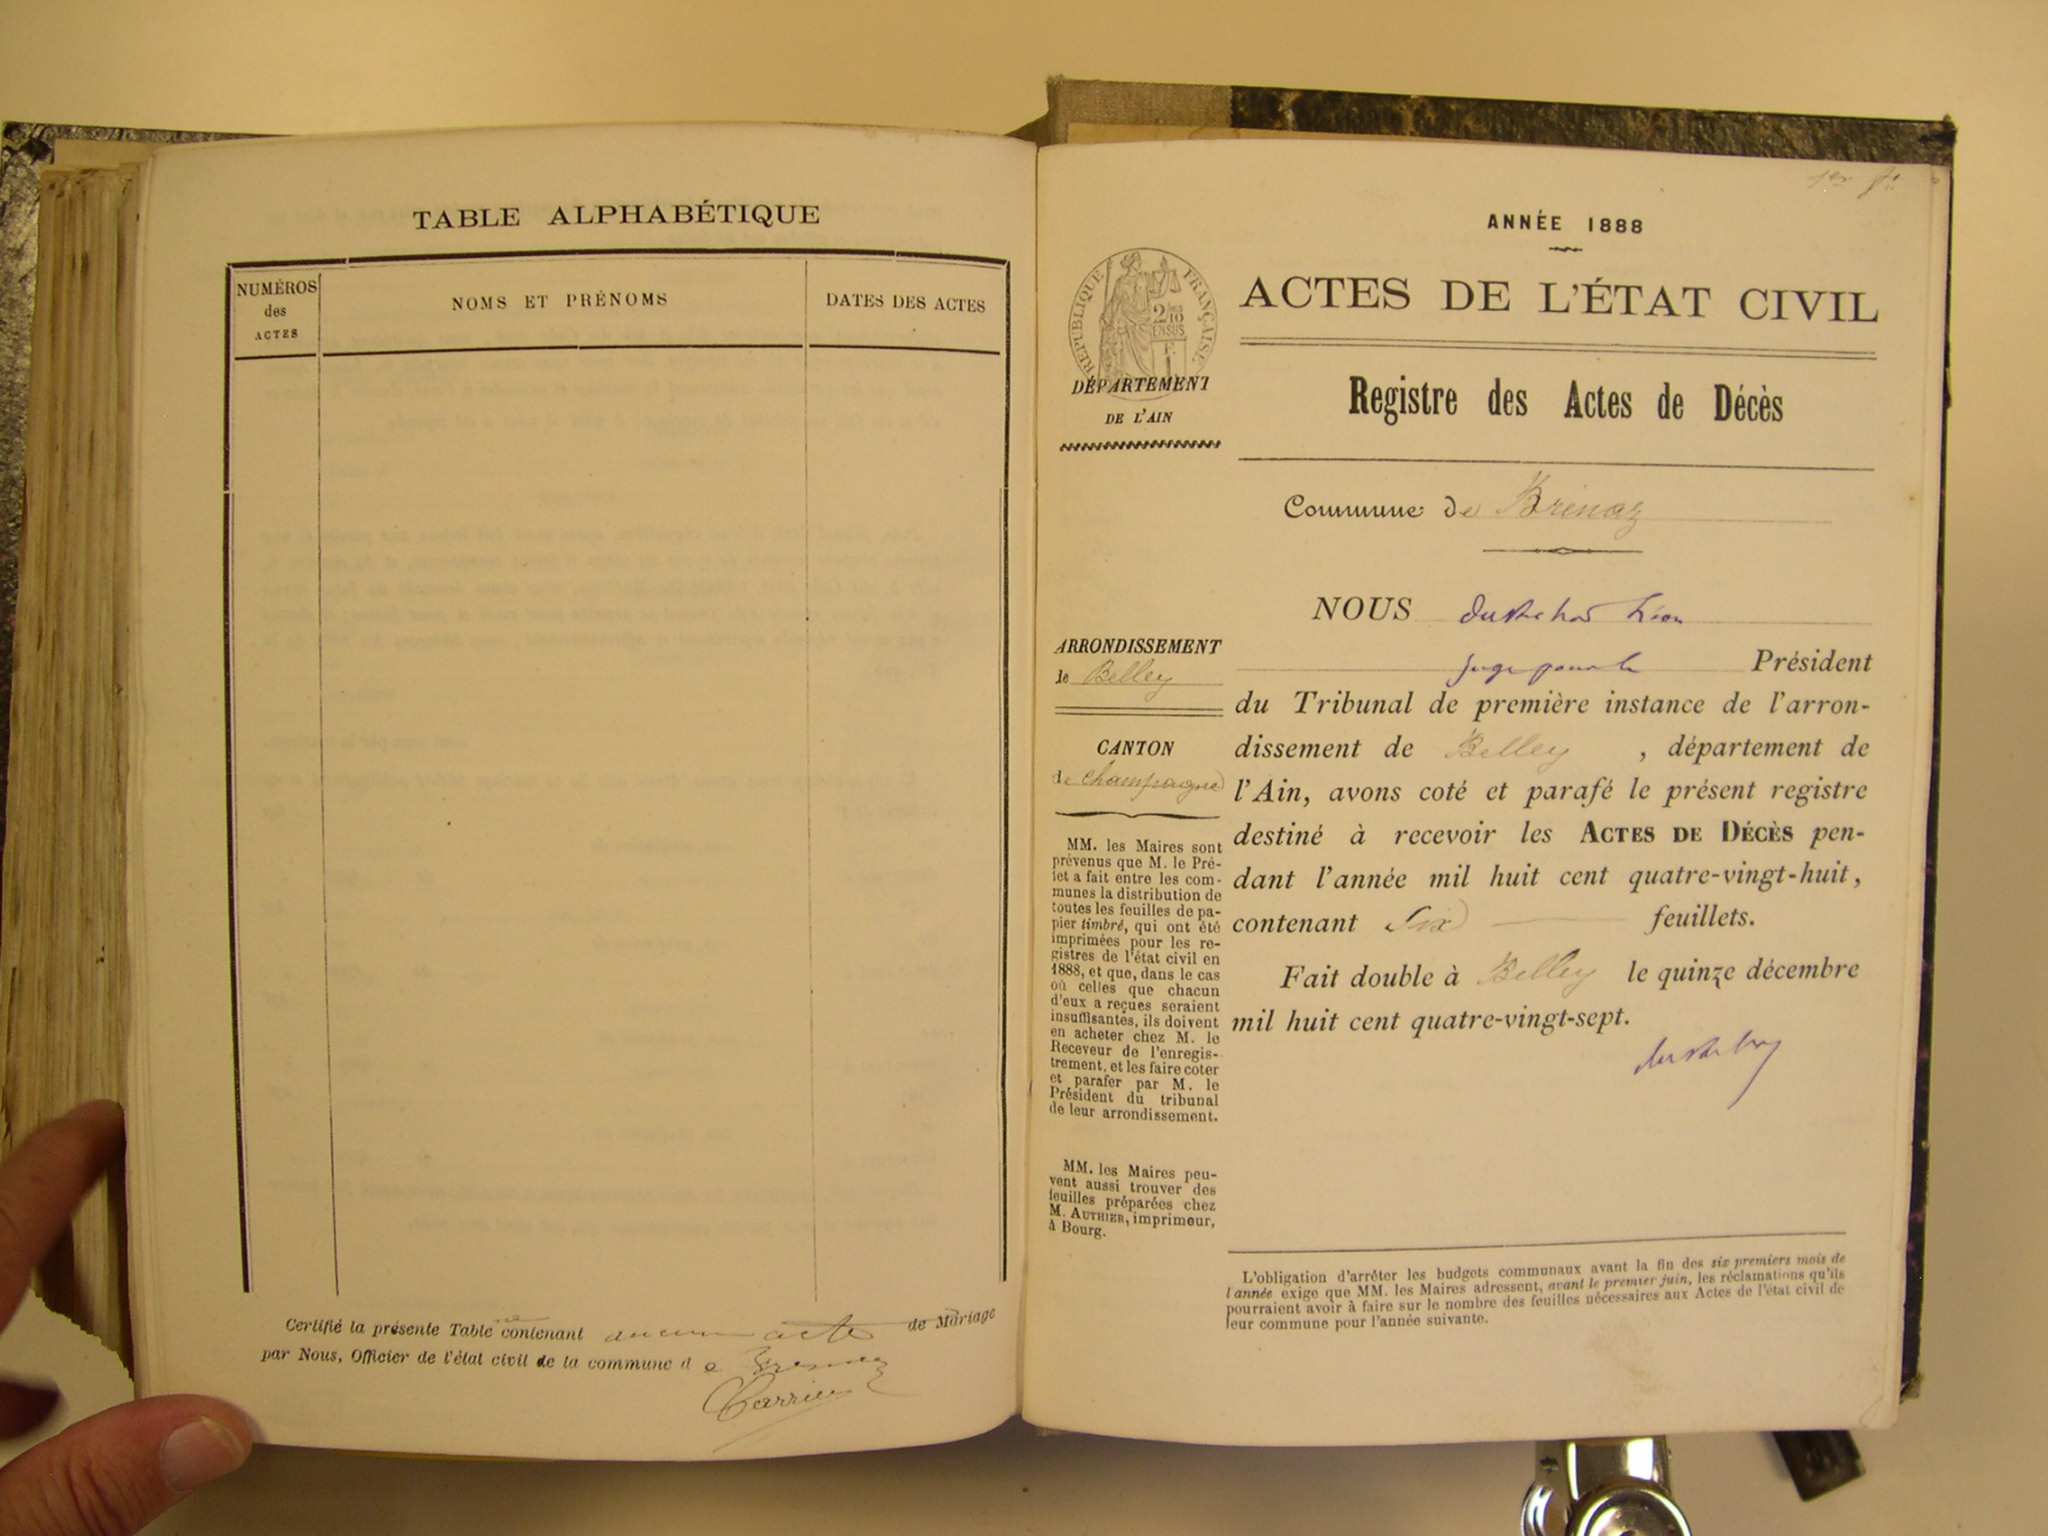 TABLE ALPHABÉTIQUE
NUMÉROS
des
ACTES
NOMS ET PRÉNOMS
DATES DES ACTES
Certifié la présente Table contenant aucun acte de Mariage
par Nous, Officier de l'état civil de la commune d e Brenaz
1er ft
ANNÉE 1888
ACTES DE L'ÉTAT CIVIL
RÉPUBLIQUE FRANÇAISE
DÉPARTEMENT
DE L'AIN
Registre des Actes de Décès
Commune de Brénaz
NOUS
Président
ARRONDISSEMENT
de Belley
du Tribunal de première instance de l'arron-
dissement de Belley , département de
l'Ain, avons coté et parafé le présent registre
destiné à recevoir les ACTES DE DÉCÈS pen-
dant l'année mil huit cent quatre-vingt-huit,
contenant Six feuillets.
Fait double à Belley le quinze décembre
mil huit cent quatre-vingt-sept.
CANTON
de Champagne
MM. les Maires sont
prévenus que M. le Pré-
fet a fait entre les com-
munes la distribution de
toutes les feuilles de pa-
pier timbré, qui ont été
imprimées pour les re-
gistres de l'état civil en
1888, et que, dans le cas
où celles que chacun
d'eux a reçues seraient
insuffisantes, ils doivent
en acheter chez M. le
Receveur de l'enregis-
trement, et les faire coter
et parafer par M. le
Président du tribunal
de leur arrondissement.
MM. les Maires peu-
vent aussi trouver des
feuilles préparées chez
M. AUTHIER, imprimeur,
à Bourg.
L'obligation d'arrêter les budgets communaux avant la fin des six premiers mois de
l'année exige que MM. les Maires adressent, avant le premier juin, les réclamations qu'ils
pourraient avoir à faire sur le nombre des feuilles nécessaires aux Actes de l'état civil de
leur commune pour l'année suivante.